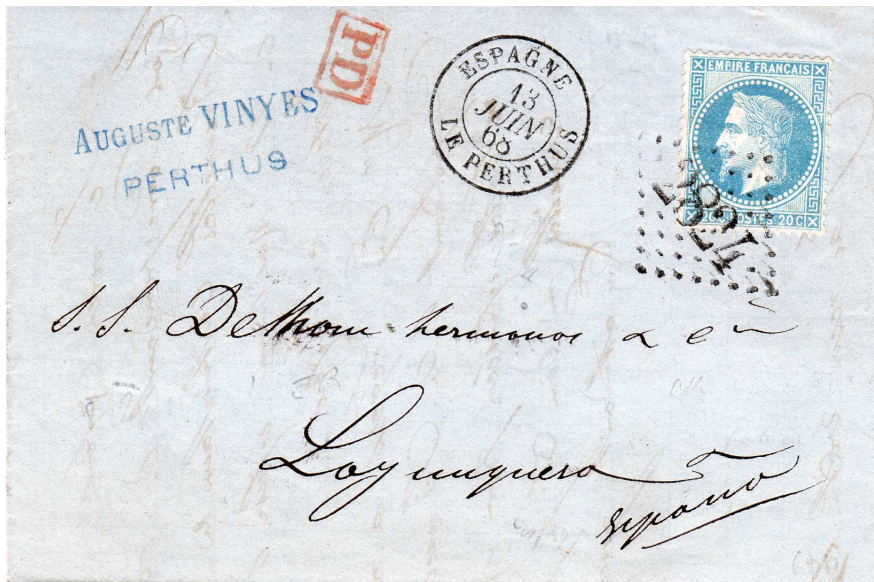 PD
AUGUSTE VINYES
PERTHUS
ESPAGNE
13
JUIN
68
LE PERTHUS
EMPIRE FRANÇAIS
20C POSTES 20C
S. S. Delhom hermanos & Cia
España